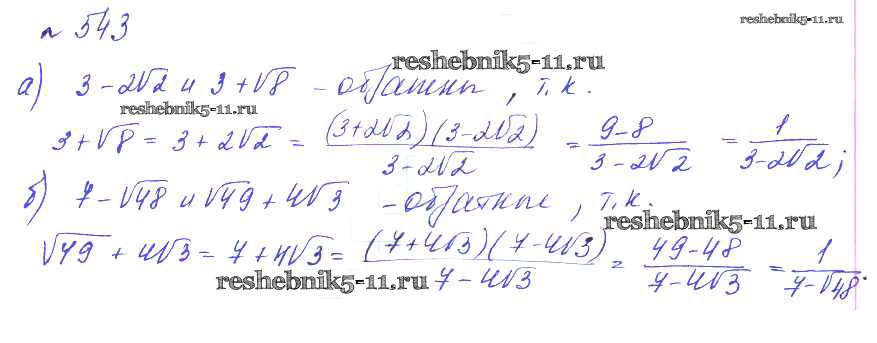 reshebnik5-11.ru
№ 543
reshebnik5-11.ru
а) 3 - 2√2 и 3 + √8 - обратны, т.к.
reshebnik5-11.ru
3 + √8 = 3 + 2√2 = (3+2√2)(3-2√2) / 3-2√2 = 9-8 / 3-2√2 = 1 / 3-2√2;
б) 7 - √48 и √49 + 4√3 - обратные, т.к.
reshebnik5-11.ru
√49 + 4√3 = 7 + 4√3 = (7+4√3)(7-4√3) / 7-4√3 = 49-48 / 7-4√3 = 1 / 7-√48.
reshebnik5-11.ru